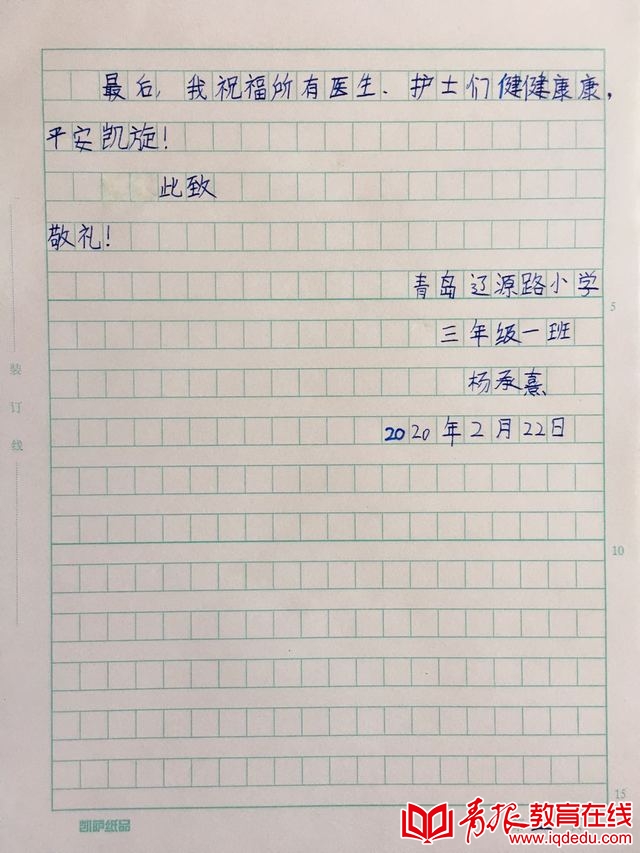 最后，我祝福所有医生、护士们健健康康，
平安凯旋！
此致
敬礼！
青岛辽源路小学
三年级一班
杨承熹
2020年2月22日
5
10
15
装订线
凯萨纸品
青报教育在线
www.iqdedu.com